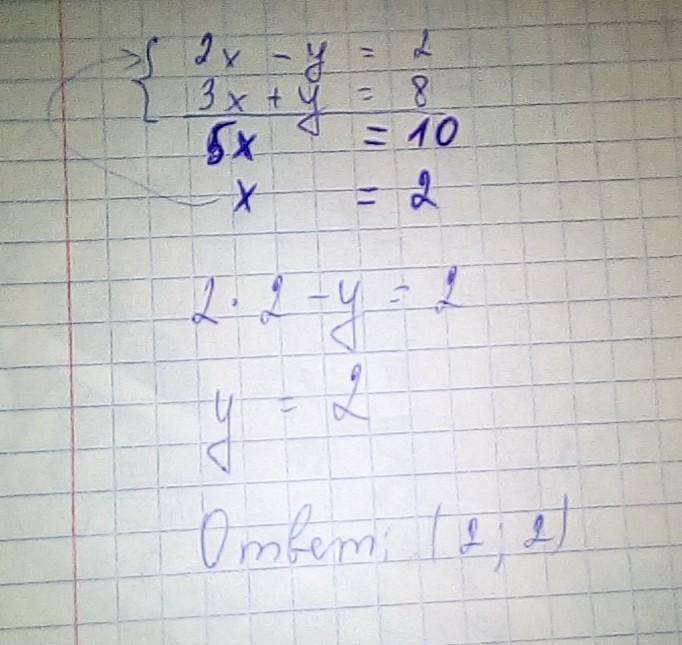 { 2x - y = 2
3x + y = 8
5x = 10
x = 2
2 · 2 - y = 2
y = 2
Ответ: (2; 2)